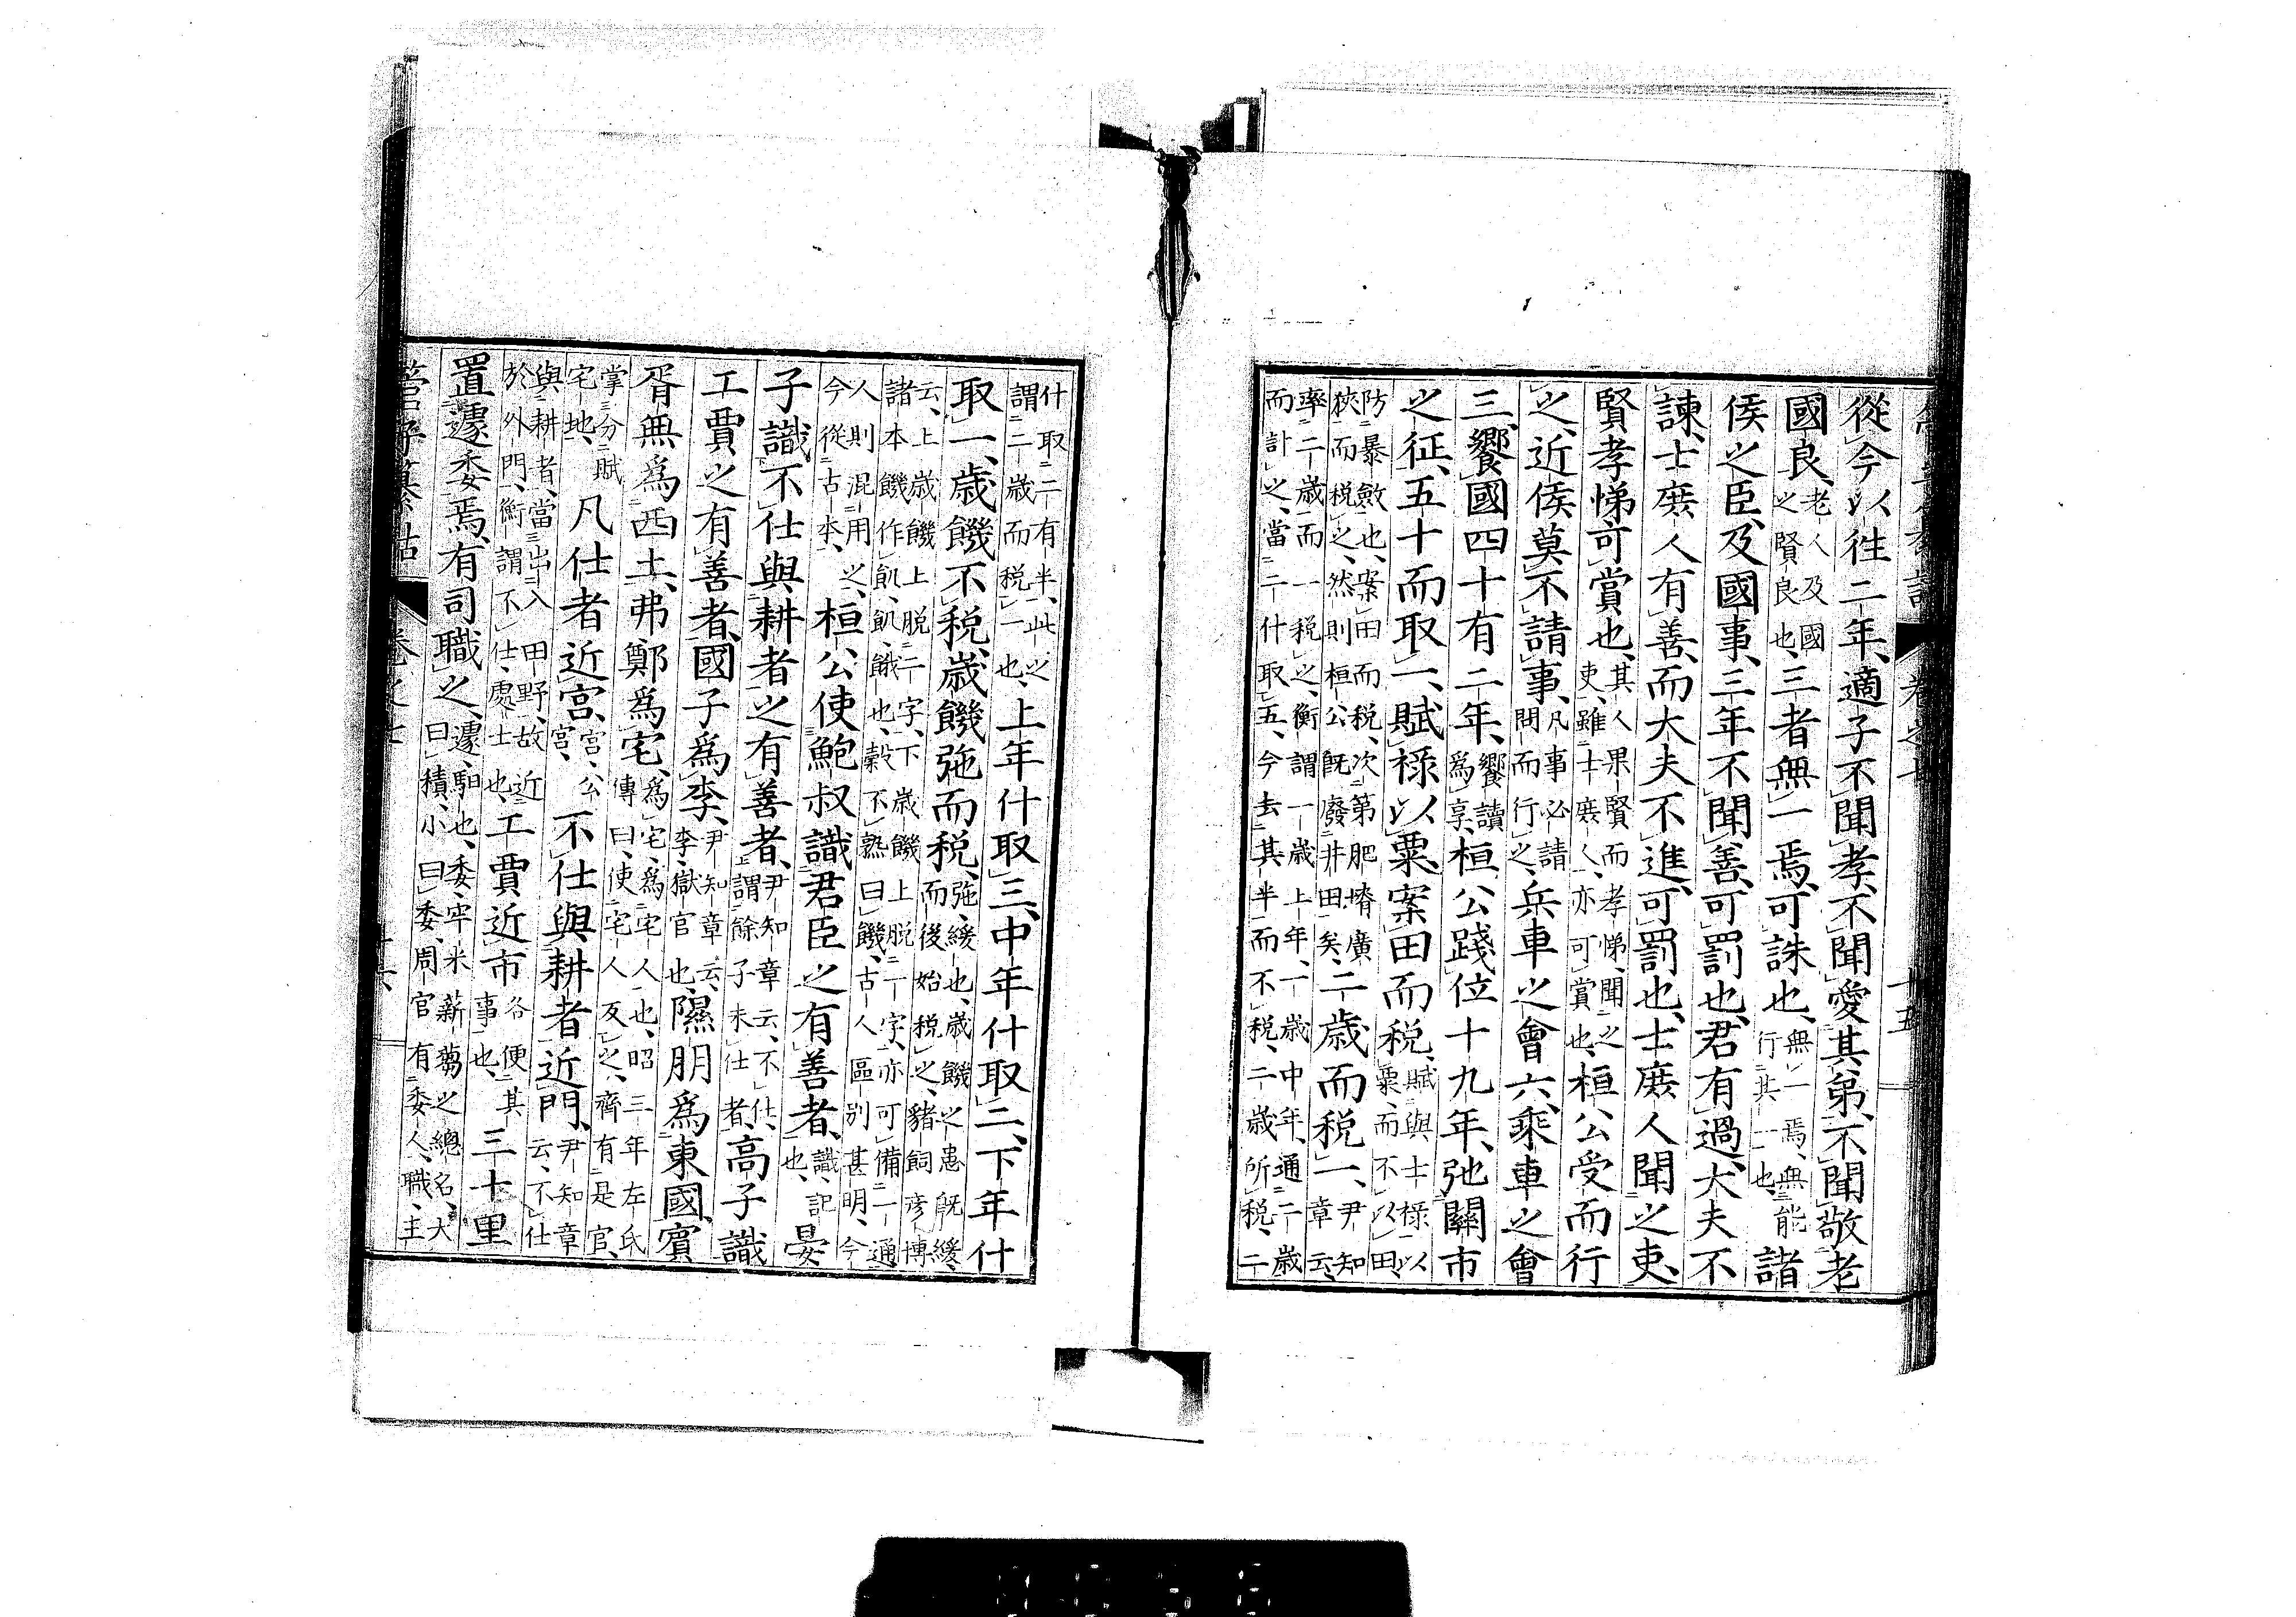 卷之七 十五
從今以徃二年、適子不聞孝、不聞愛其弟、不聞敬老
國良、老人及國之賢良也、三者無一焉、可誅也、無一焉、無能行其一也、諸
侯之臣、及國事、三年不聞善、可罰也、君有過、大夫不
諫、士庶人有善、而大夫不進、可罰也、士庶人聞之吏、
賢孝悌可賞也、其人果賢而孝悌、聞之吏、雖士庶人、亦可賞也、桓公受而行
之、近侯莫不請事、凡事必請問而行之、兵車之會六、乘車之會
三、饗國四十有二年、饗讀爲享、桓公踐位十九年、弛關市
之征、五十而取一、賦祿以粟、案田而税、賦與士祿以粟、而不以田、
防暴斂也、案田而税、次第肥瘠廣狹而税之、然則桓公既廢井田矣、二歲而税一、尹知章云、
率二歲而一税之、衡謂一歲上年、一歲中年、通二歲而計之、當二什取五、今去其半而不税、二歲所税、二
什取二有半、此之謂二歲而税一也、上年什取三、中年什取二、下年什
取一、歲饑不税、歲饑弛而税、弛、緩也、歲饑之患既緩、而後始税之、豬飼彥博
云、上歲饑上脱二字、下歲饑上脱一字、亦可備一通、諸本饑作飢、飢、餓也、穀不熟曰饑、古人區別甚明、今
人則混用之、今從古本、桓公使鮑叔識君臣之有善者、識、記也、晏
子識不仕與耕者之有善者、尹知章云、不仕、謂餘子未仕者、高子識
工賈之有善者、國子爲李、尹知章云、李、獄官也、隰朋爲東國、賓
胥無爲西土、弗鄭爲宅、爲宅、爲宅人也、昭三年左氏傳曰、使宅人反之、齊有是官、
掌分賦宅地、凡仕者近宮、宮、公宮、不仕與耕者近門、尹知章云、不仕
與耕者、當出入田野、故近於外門、衡謂不仕、處士也、工賈近市、各便其事也、三十里
置遽委焉、有司職之、遽、馹也、委、牢米薪芻之總名、大曰積、小曰委、周官有委人、職、主
管子纂詁 卷之七